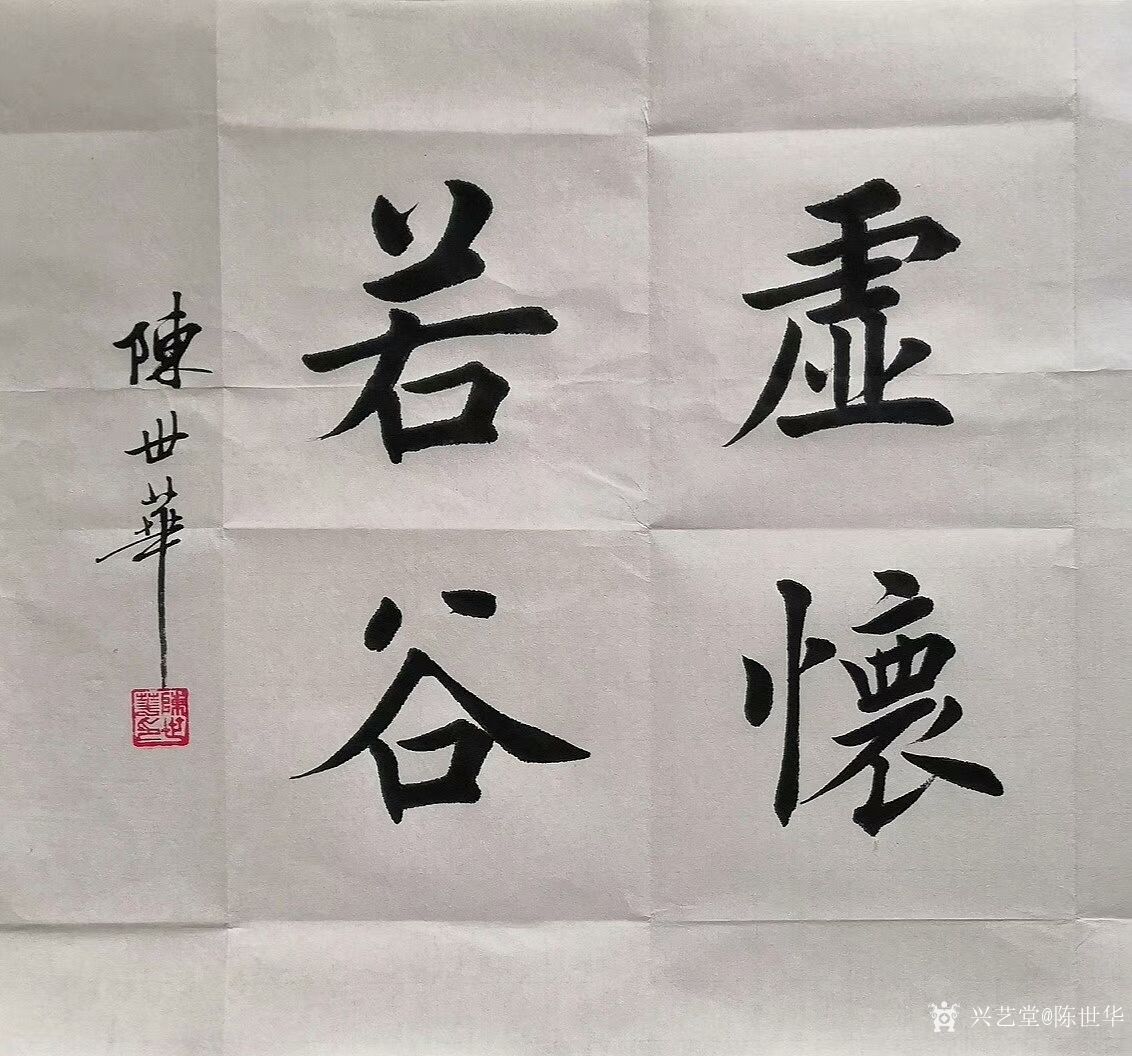 虚懷
若谷
陳世華
陳世華印
兴艺堂@陈世华